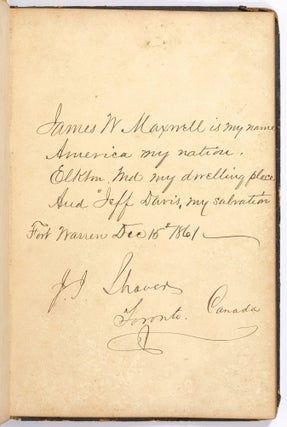 James W Maxwell is my name
America my nation.
Elkton Md my dwelling place
And "Jeff Davis, my salvation
Fort Warren Dec 16th 1861
J. J Shaver
Toronto. Canada